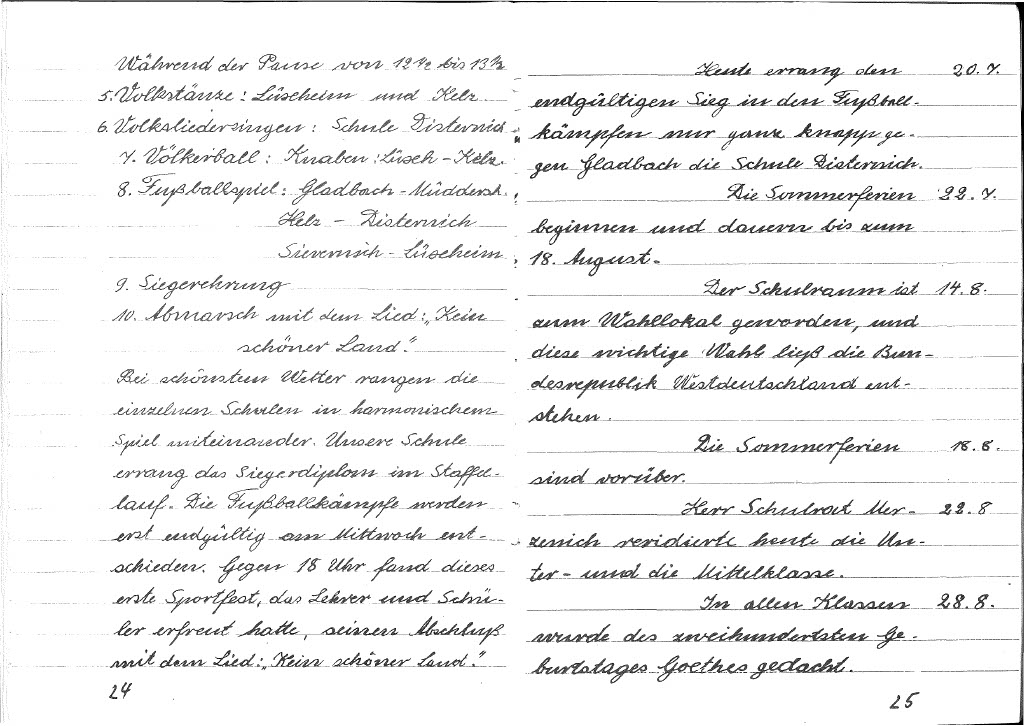 Während der Pause von 12½ bis 13½
5. Volkstänze: Lüxheim und Kelz
6. Volksliedersingen: Schule Disternich
7. Völkerball: Knaben: Lüxh - Kelz.
8. Fußballspiel: Gladbach - Müddersh.
Kelz - Disternich
Sievernich - Lüxheim
9. Siegerehrung
10. Abmarsch mit dem Lied: „Kein
schöner Land."
Bei schönstem Wetter rangen die
einzelnen Schulen in harmonischem
Spiel miteinander. Unsere Schule
errang das Siegerdiplom im Staffel-
lauf. Die Fußballkämpfe werden
erst endgültig am Mittwoch ent-
schieden. Gegen 18 Uhr fand dieses
erste Sportfest, das Lehrer und Schü-
ler erfreut hatte, seinen Abschluß
mit dem Lied: „Kein schöner Land."
24
Heute errang den 20.7.
endgültigen Sieg in den Fußball-
kämpfen nur ganz knapp ge-
gen Gladbach die Schule Disternich.
Die Sommerferien 22.7.
beginnen und dauern bis zum
18. August.
Der Schulraum ist 14.8.
zum Wahllokal geworden, und
diese wichtige Wahl ließ die Bun-
desrepublik Westdeutschland ent-
stehen.
Die Sommerferien 18.8.
sind vorüber.
Herr Schulrat Mer- 22.8
zenich revidierte heute die Un-
ter- und die Mittelklasse.
In allen Klassen 28.8.
wurde des zweihundertsten Ge-
burtstages Goethes gedacht.
25